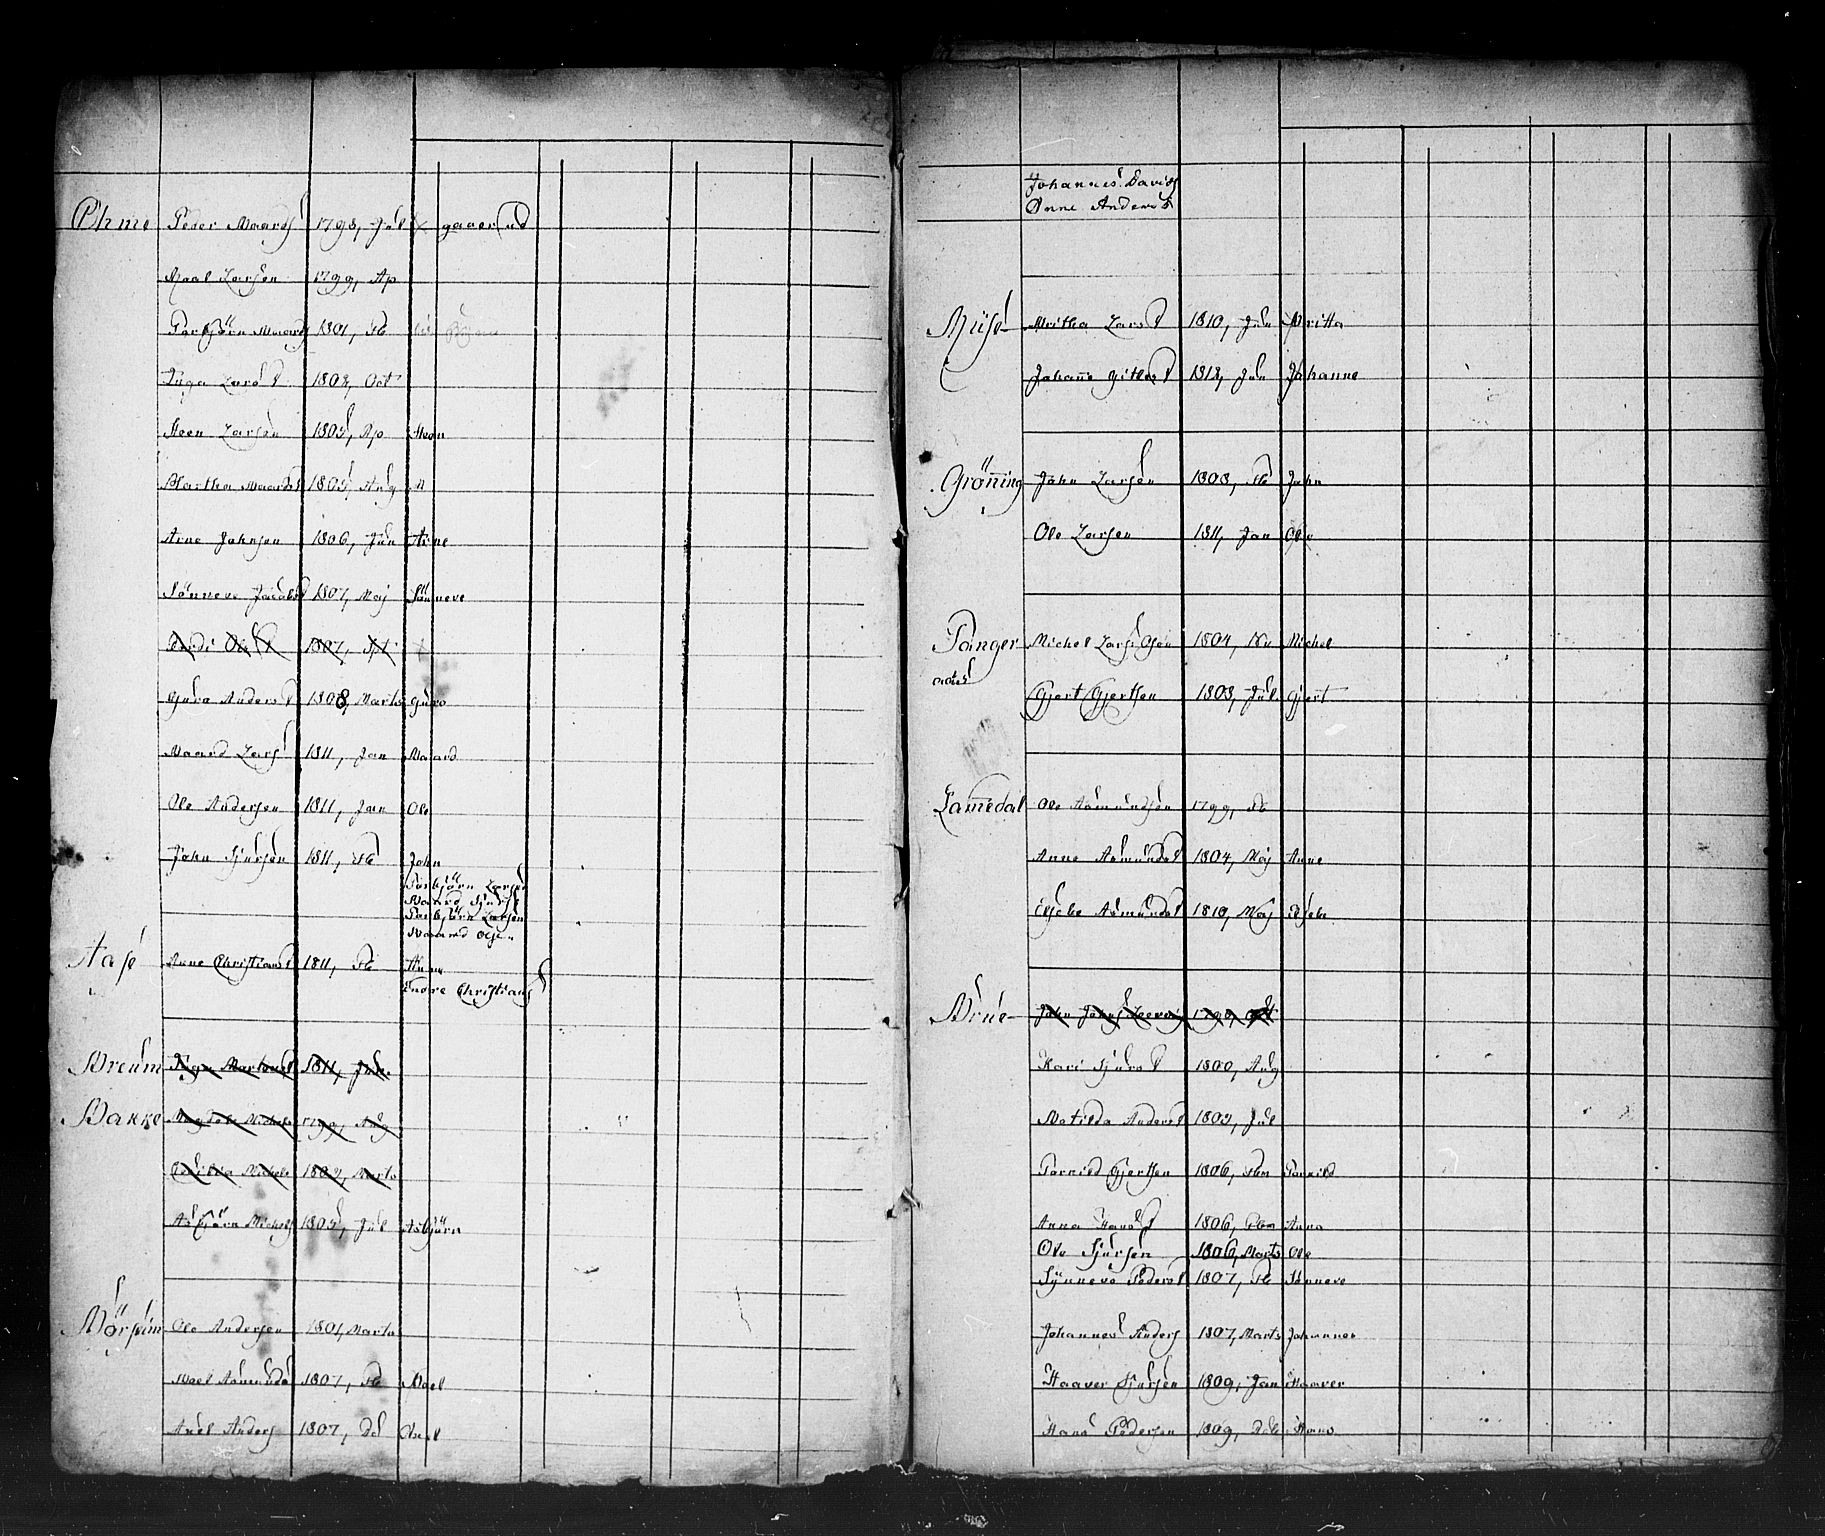 Peder Maards 1798, Jul gaaer ud
Larsen 1799, Ap
1801, Fb
Inga Larsd 1802, Oct
Steen Larsen 1805, Ap Steen
Martha Maardsd 1805, Aug
Arne Johnsen 1806, Jun Arne
Sönneve Jacobsd 1807, Maj Sönneve
1807, Spt
Guro Andersd 1808, Marts Guro
Maard Lars 1811, Jan Maard
Ole Andersen 1811, Jan Ole
John Sjursen 1811, Fb John
Torbjörn Larsen
Maard Sjurs
Torbjörn Larsen
Maard Olsen
Aase Anne Christiansd 1811, Fb Anne
Endre Christians
Breum Inga 1811, Jul
Bakke Michels 1799, Aug
Michels 1802, Marts
Asbjörn Michels 1805, Jul Asbjörn
Ole Andersen 1801, Marts
Asmunds 1807, Fb
Axel Anders 1807, Dc Axel
Johannes Davids
Anne Andersd
Britha Larsd 1810, Jul Britta
Johanne Gitlesd 1812, Jul Johanne
Gröning John Larsen 1803, Fb John
Ole Larsen 1811, Jan Ole
Tanger Michel Lars Olsen 1804, Nv Michel
Gjert Gjertsen 1803, Jul Gjert
Lamedal Ole Asmundsen 1799, Fb
Anne Asmundsd 1804, Maj Anne
Asmundsd 1810, Maj
Brue John Johns 1799, Oct
Kari Sjursd 1800, Aug
Matilda Andersd 1805, Jul
Gjertsen 1806,
Anna Hansd 1806, Anna
Ole Sjursen 1806, Marts Ole
Synneve Pedersd 1807, Fb Sönneve
Johannes Anders 1807, Marts Johannes
Haaver Sjursen 1809, Jan Haaver
Hans Pedersen 1809, Hans